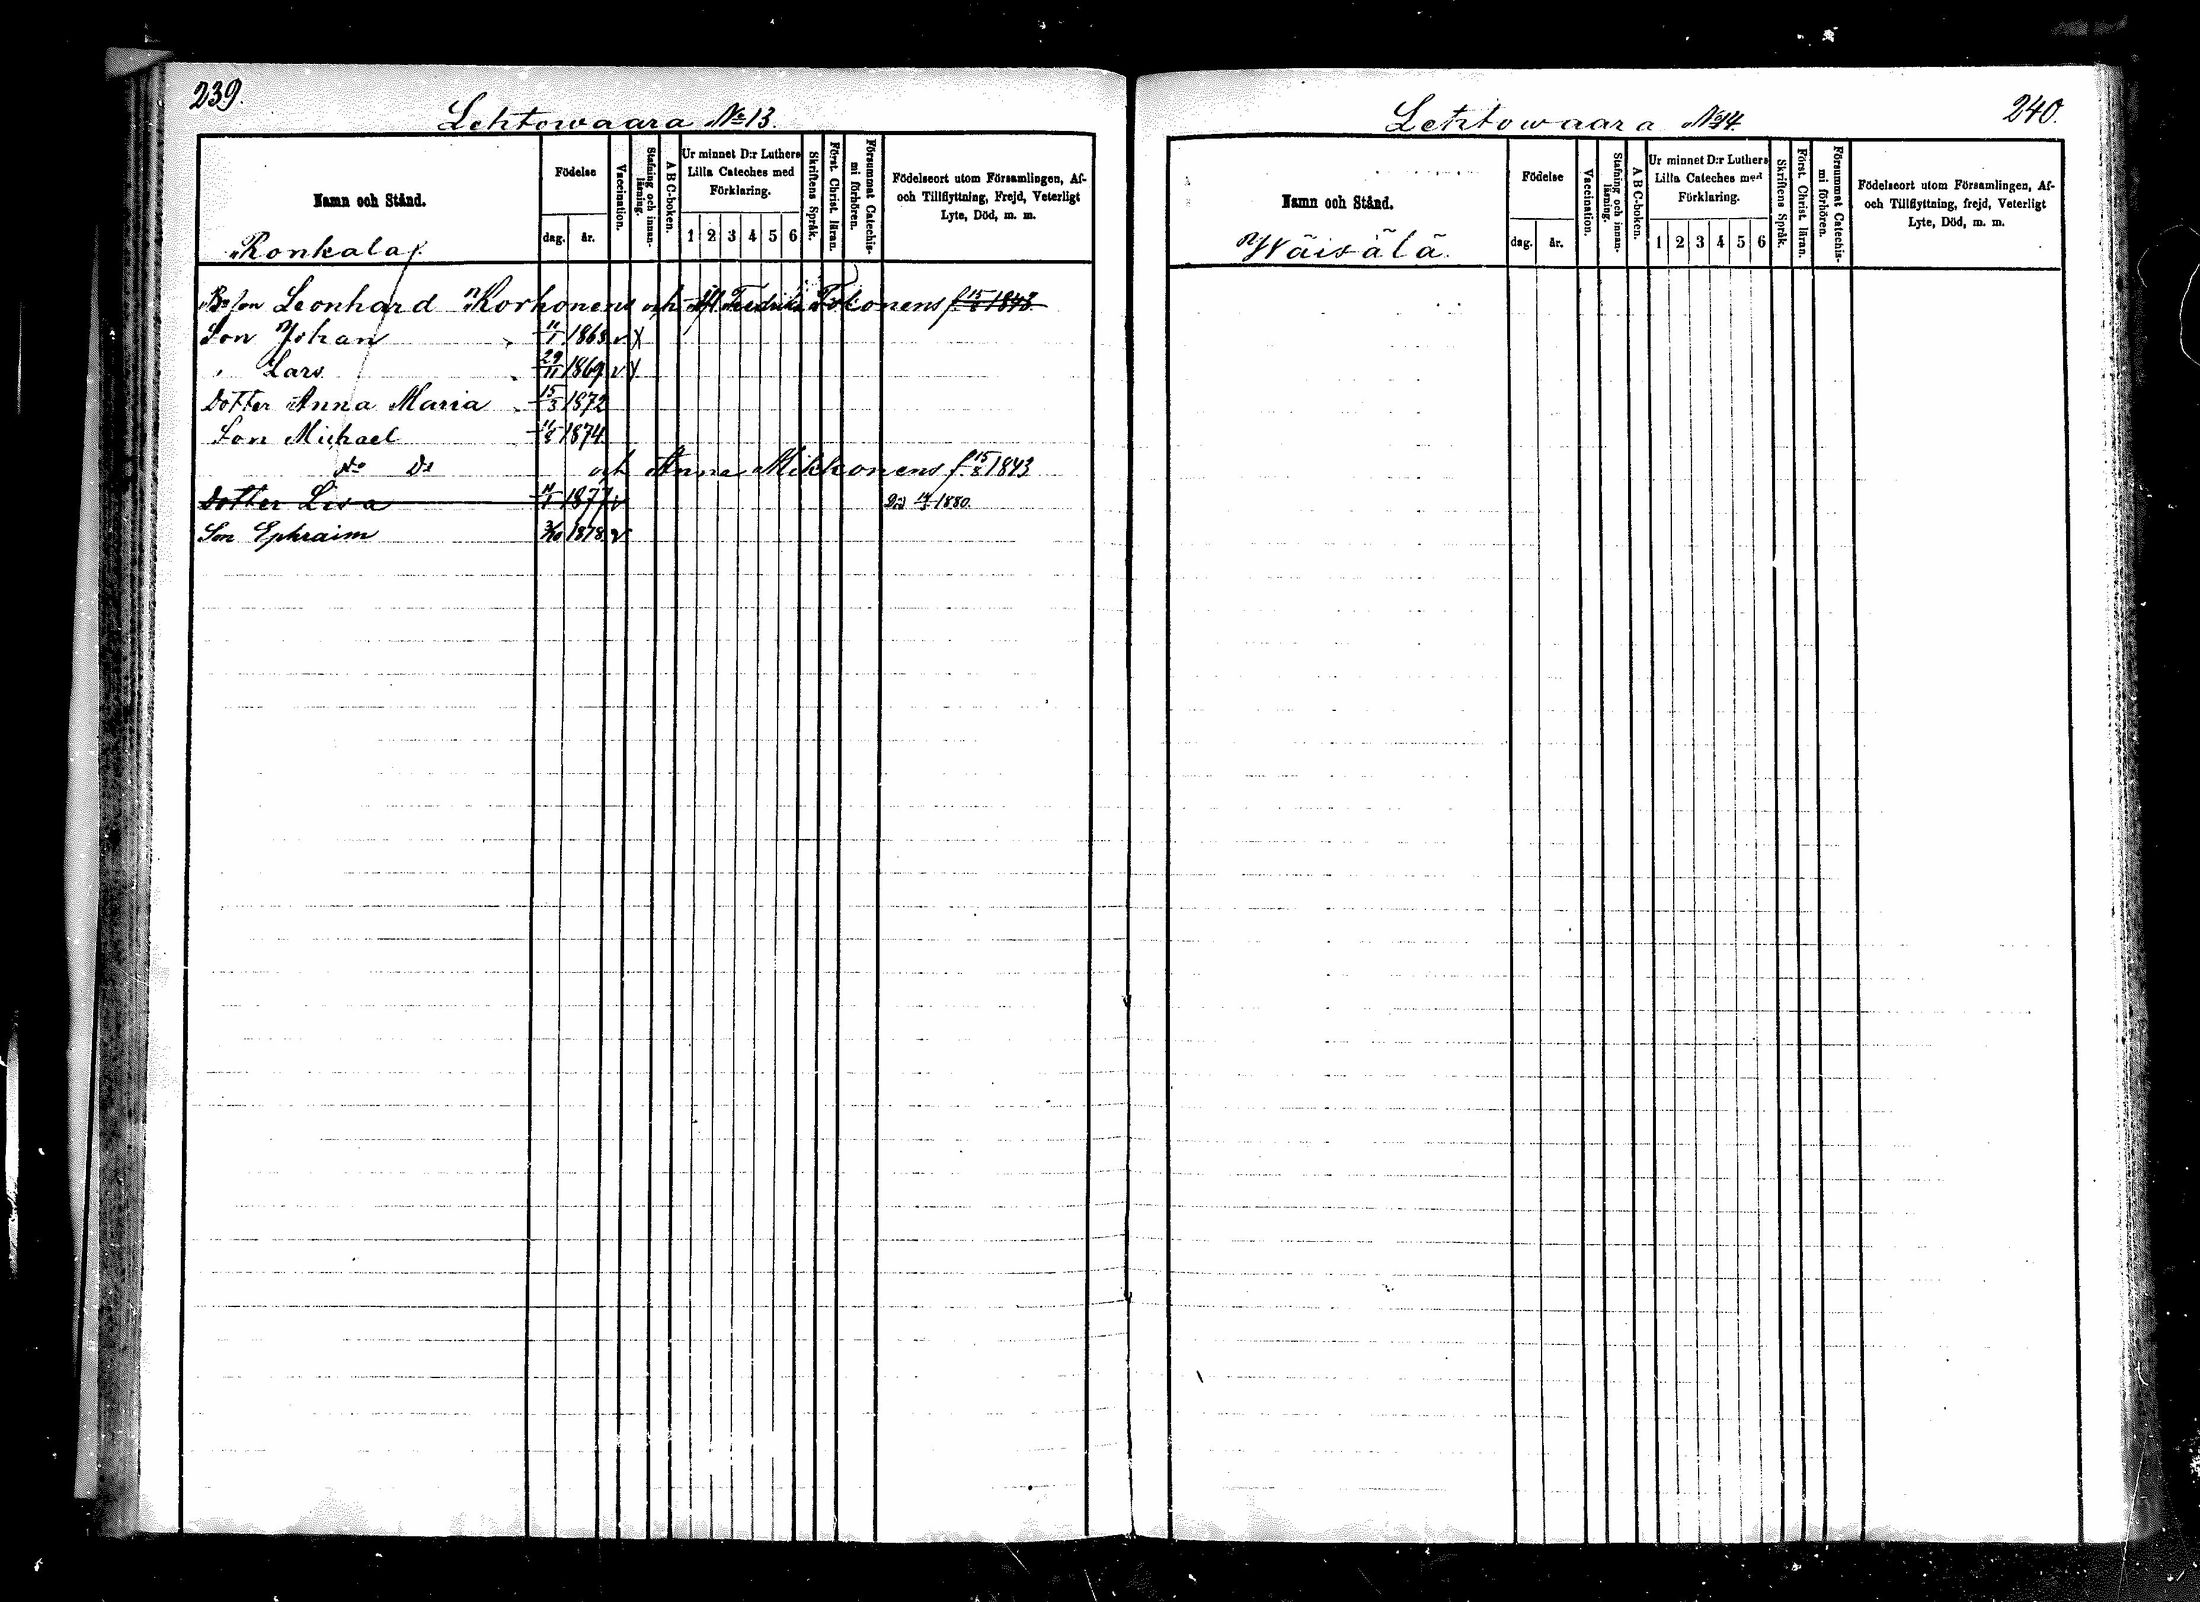 239.
Lehtowaara No 13.
Namn och Stånd.
Födelse
dag.
år.
Vaccination.
Stafning och innan-
läsning.
A B C-boken.
Ur minnet D:r Luthers
Lilla Cateches med
Förklaring.
1 2 3 4 5 6
Skriftens Språk.
Först. Christ. läran.
Försummat Catechis-
mi förhören.
Födelseort utom Församlingen, Af-
och Tillflyttning, Frejd, Veterligt
Lyte, Död, m. m.
Ronkala
Leonhard Korhonens och Fredrika Tokonens f. 15/8 1843
Son Johan 11/1 1863 v
" Lars 29/11 1869 v
Dotter Anna Maria 15/3 1872
Son Michael 1874
Do och Anna Mikkonens f 15/8 1843
Dotter Lisa 1877 v Död 1880.
Son Ephraim 1878 v
240.
Lehtowaara No 14.
Namn och Stånd.
Födelse
dag.
år.
Vaccination.
Stafning och innan-
läsning.
A B C-boken.
Ur minnet D:r Luthers
Lilla Cateches med
Förklaring.
1 2 3 4 5 6
Skriftens Språk.
Först. Christ. läran.
Försummat Catechis-
mi förhören.
Födelseort utom Församlingen, Af-
och Tillflyttning, frejd, Veterligt
Lyte, Död, m. m.
Wäisälä.